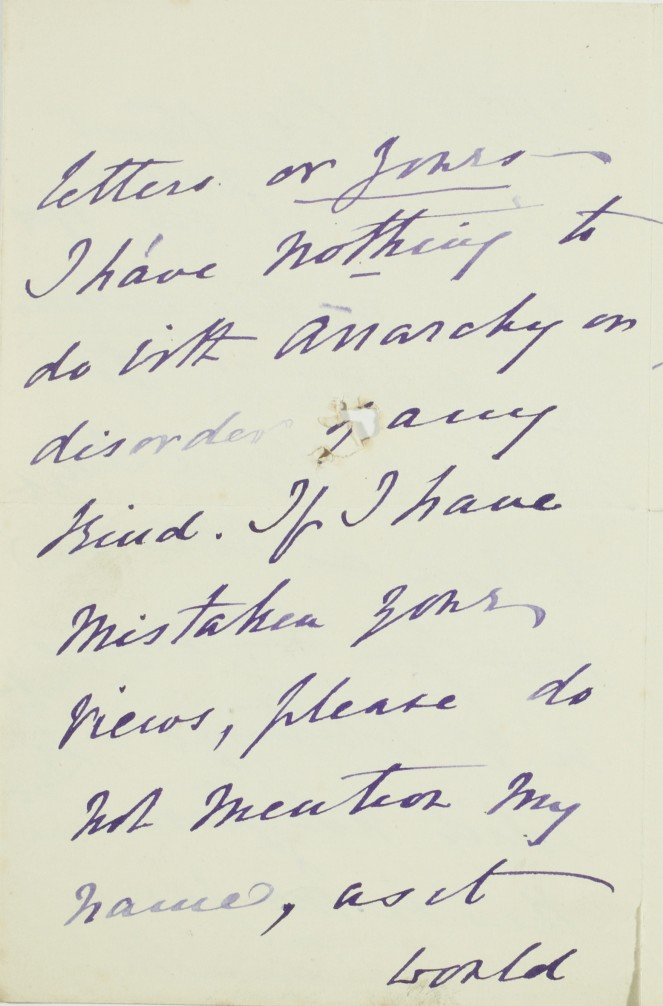 letters or yours—
I have nothing to
do with Anarchy or
disorder of any
kind. If I have
mistaken your
views, please do
not mention my
name, as it
would